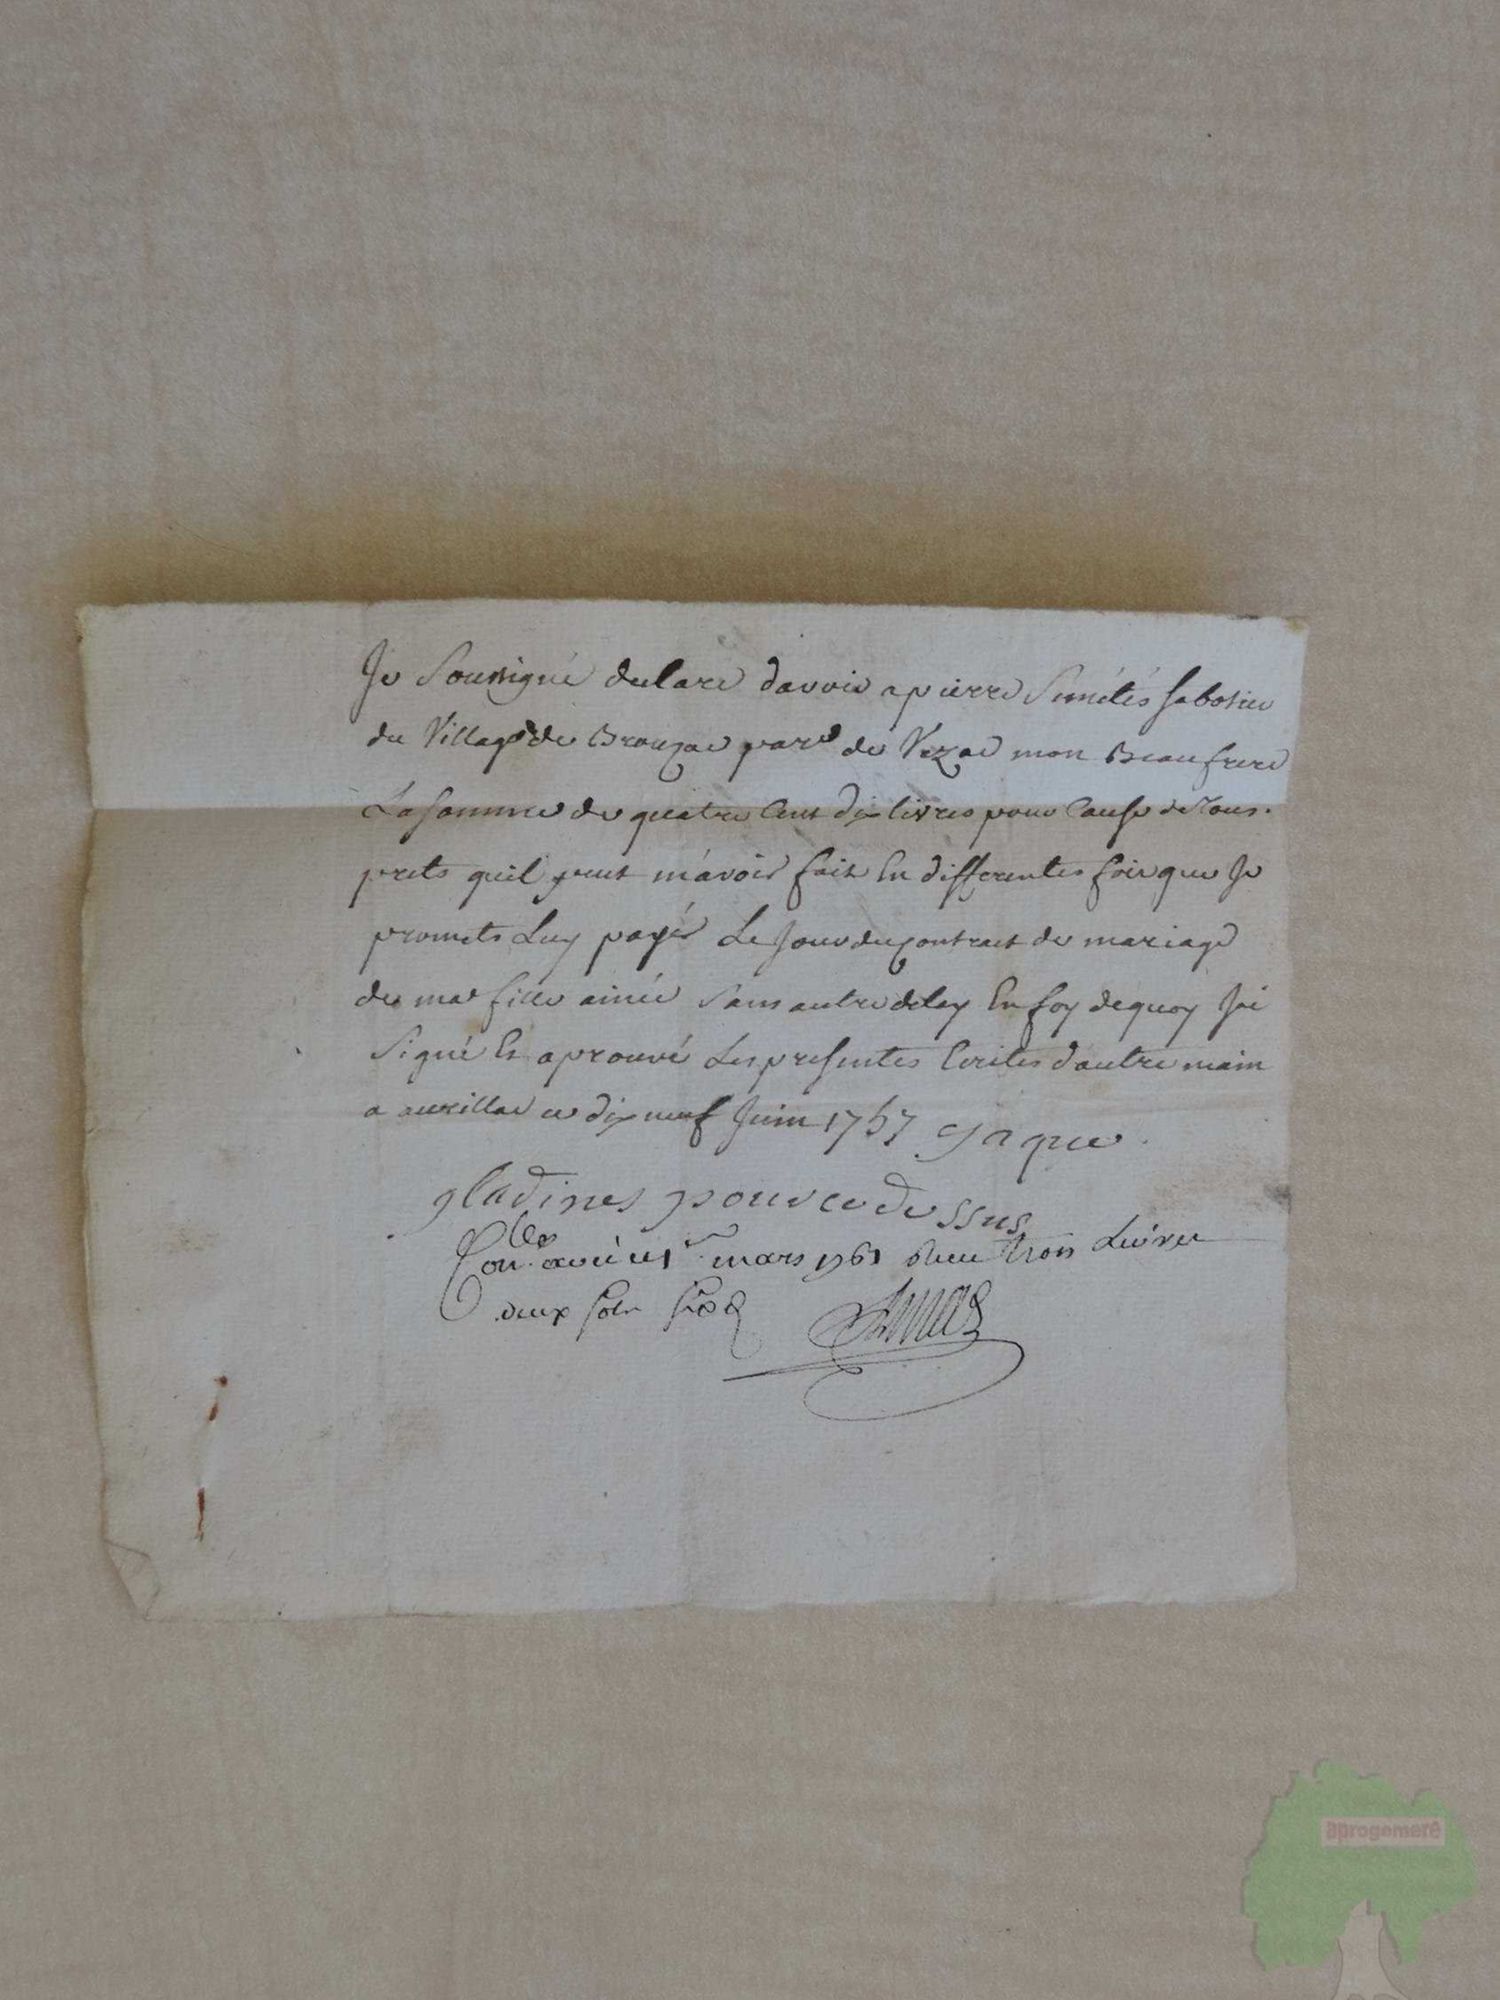 Je Soussigné declare davoir a pierre Simétés sabotier
du Village de Brouzac parse de Vezac mon Beaufrere
La somme de quatre Cent dix livres pour Cause de Tous
prets quil peut m'avoir fait En differentes fois que Je
promets Luy payér Le Jour du Contract de mariage
de ma fille ainée Sans autre delay En foy de quoy J'ai
Signé Et aprouvé Les presentes Ecrites d'autre main
a aurillac ce dix neuf Juin 1757 Jaque
gladines pour ce de ssus
Conlle a ce 1er mars 1761 Receu trois Livres
deux sols six d
aprogemere